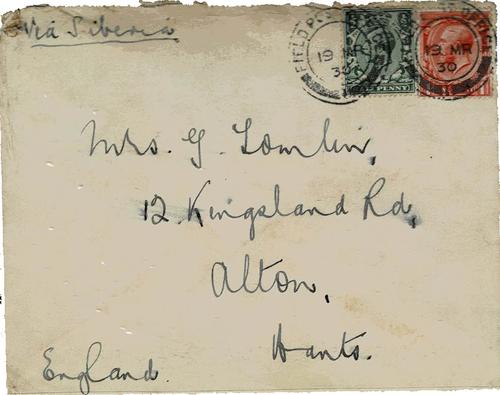 Via Siberia
FIELD POST OFFICE
19 MR
30
OFFICE
19 MR
30
PENNY
Mrs. G. Tomlin,
12 Kingsland Rd,
Alton,
Hants.
England.